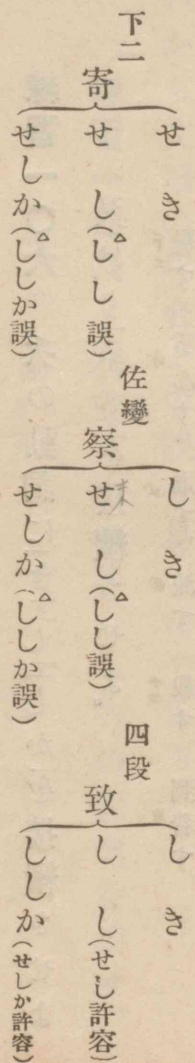 下二
寄
せき
せし(しし誤)
せしか(ししか誤)
佐變
察
しき
せし(しし誤)
せしか(ししか誤)
四段
致
しき
しし(せし許容)
ししか(せしか許容)